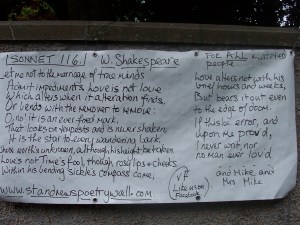 SONNET 116. W. Shakespeare
Let me not to the marriage of true minds
Admit impediments. Love is not love
Which alters when it alteration finds,
Or bends with the remover to remove:
O, no! it is an ever-fixed mark,
That looks on tempests and is never shaken;
It is the star to every wandering bark,
Whose worth's unknown, although his height be taken.
Love's not Time's Fool, though rosy lips & cheeks
Within his bending sickle's compass come;
www.standrewspoetrywall.com
FOR ALL
people
Love alters not with his
brief hours and weeks,
But bears it out even
to the edge of doom.
If this be error, and
upon me prov'd,
I never writ, nor
no man ever lov'd
Like us on
Facebook
and Mike and
Mrs Mike